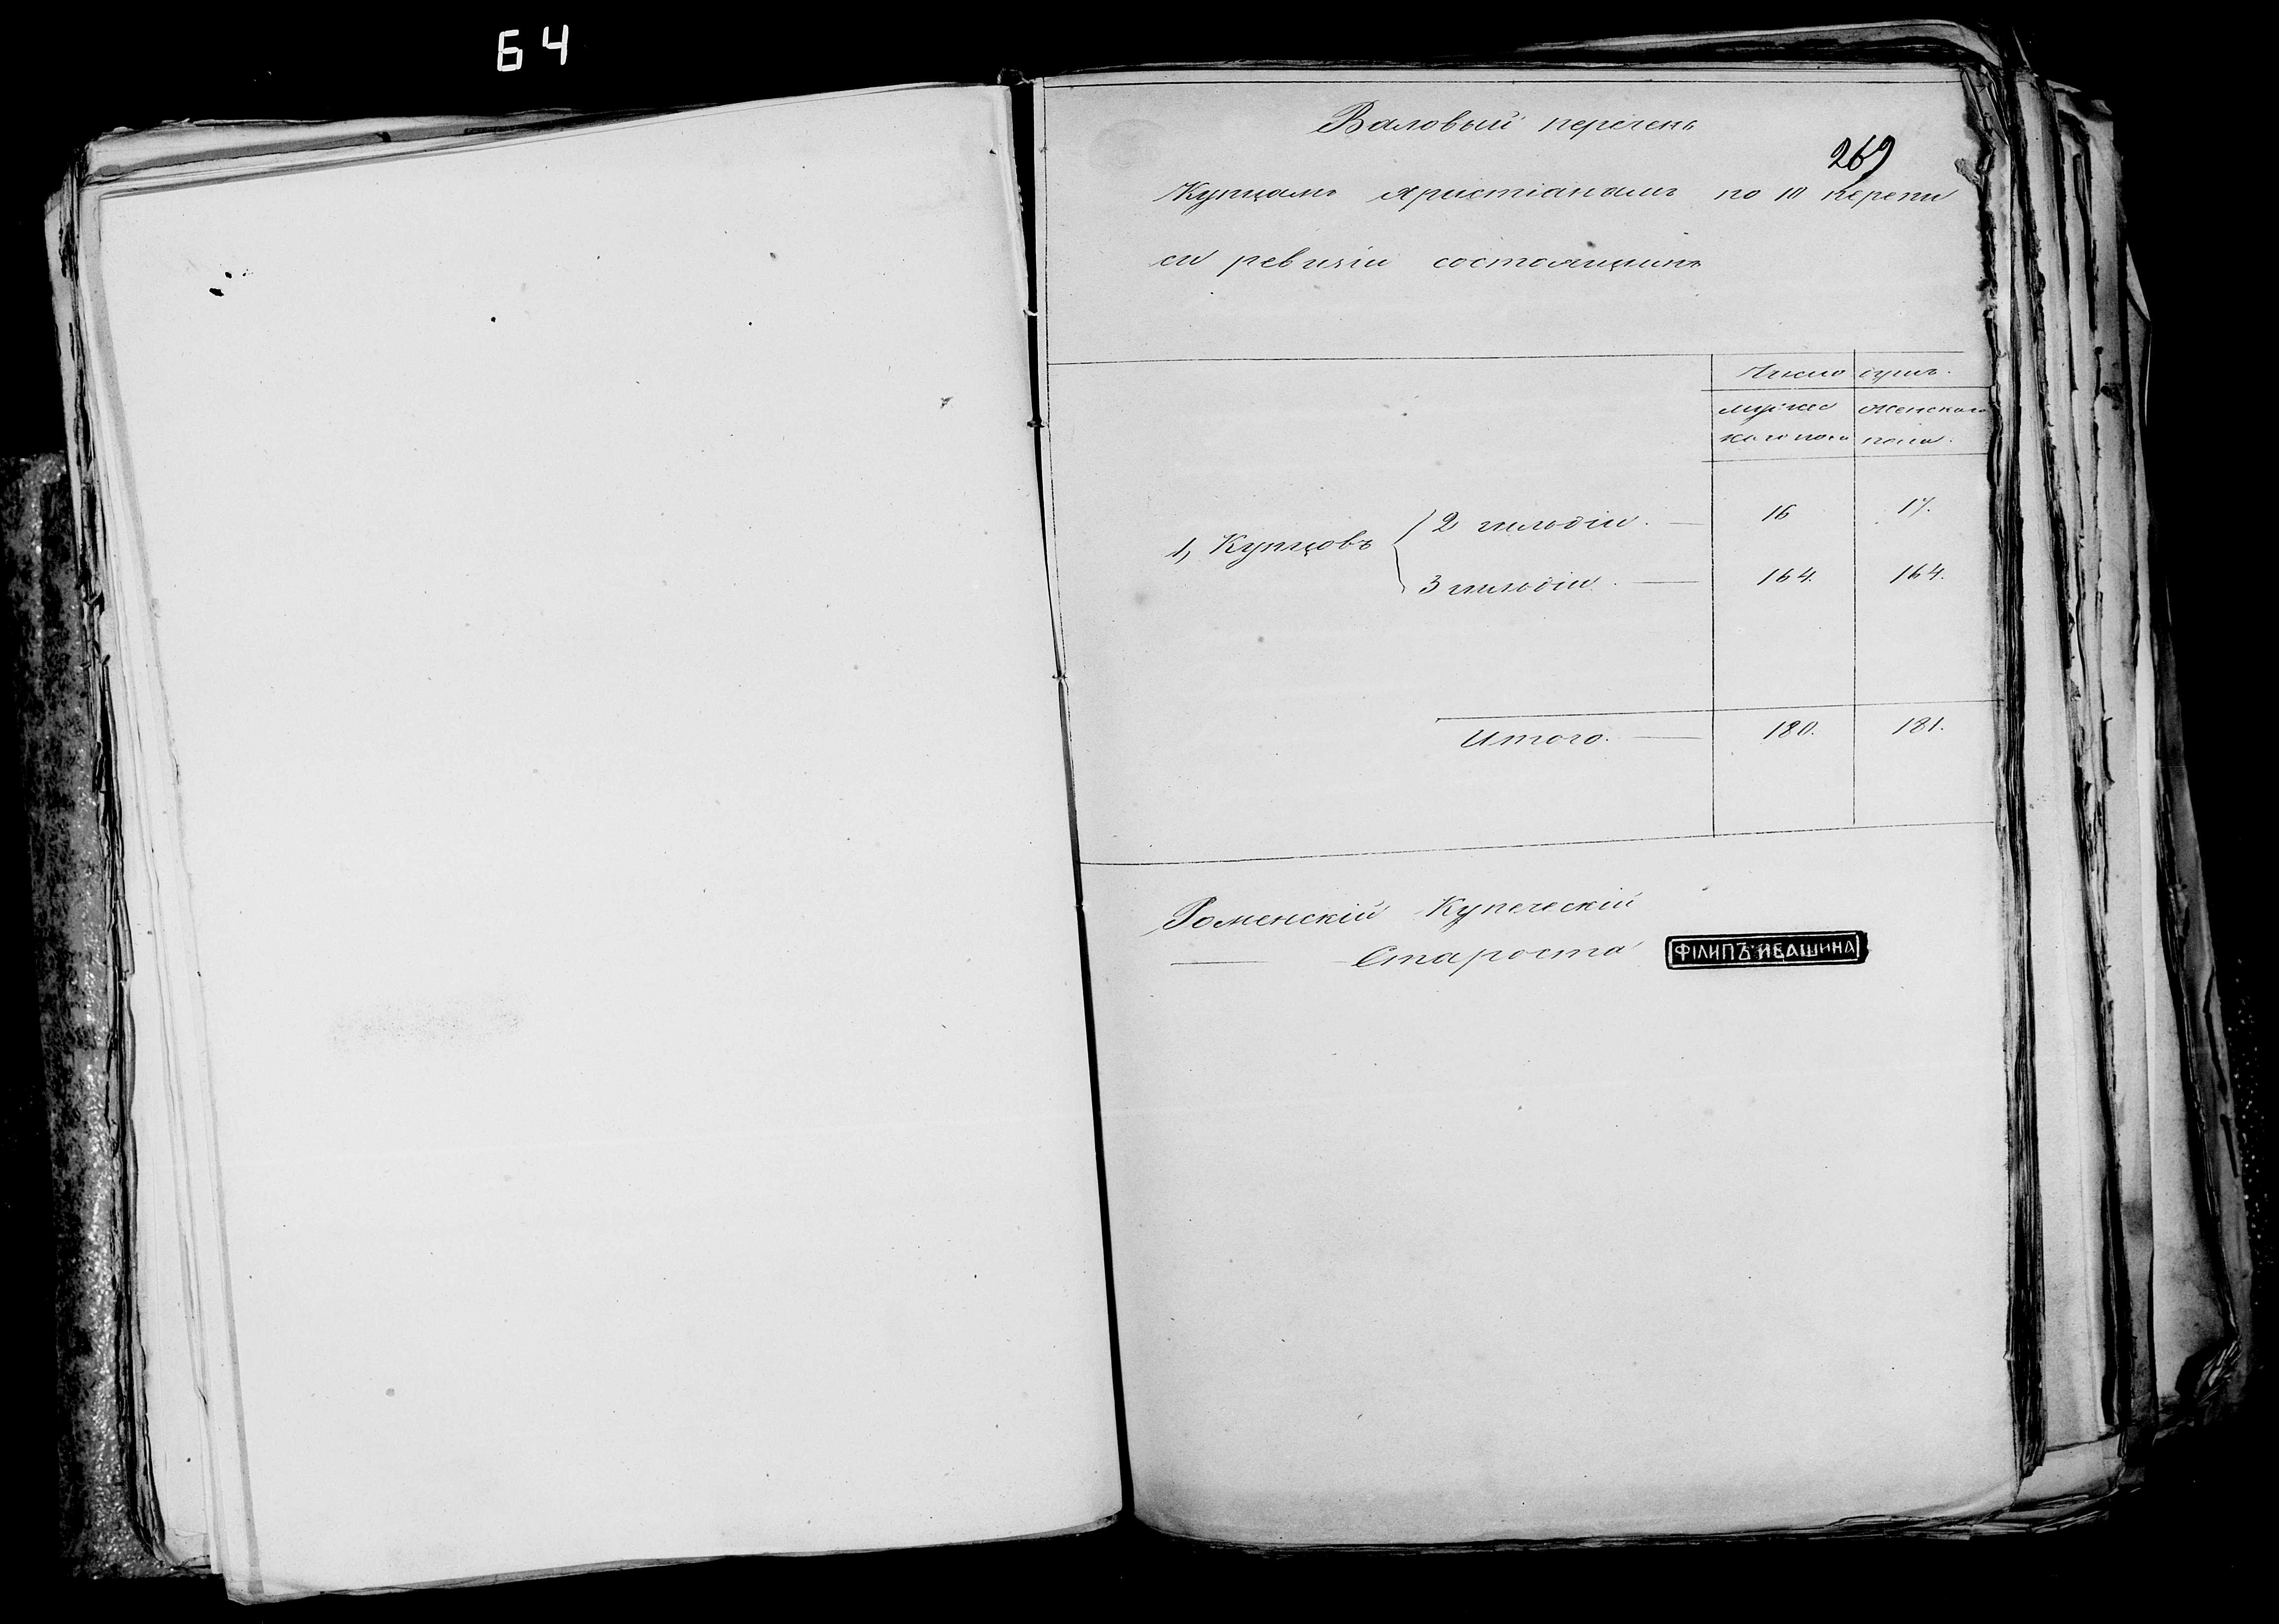 64
Валовый перечень
269
Купцамъ христіанамъ по 10 перепи
си ревизіи состоящимъ
Число душъ.
мужес женскаго
каго пола пола.
1, Купцовъ { 2 гильдіи. — 16 17.
3 гильдіи. — 164. 164.
Итого. — 180. 181.
Роменскій Купеческій
— Староста
ФІЛИПЪ ИВАШИНА